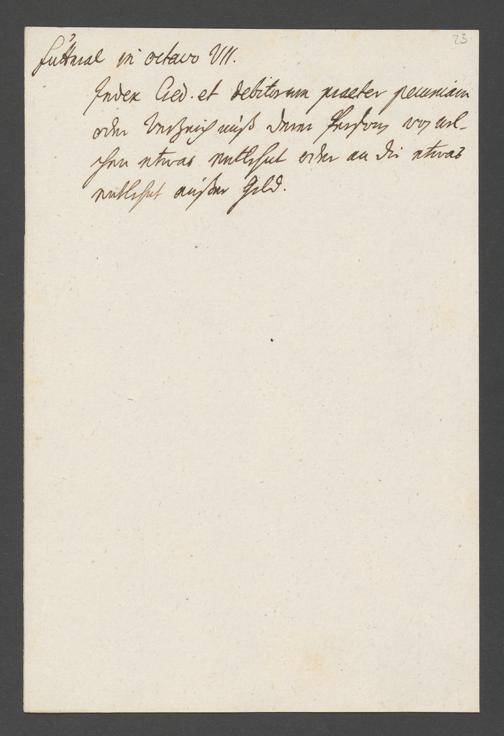 23
Futteral in octavo VII.
Index Cred. et debitorum praeter pecuniam
oder Verzeichniß derer Personen von wel-
chen etwas entlehnt oder an die etwas
entlehnt außer Geld.